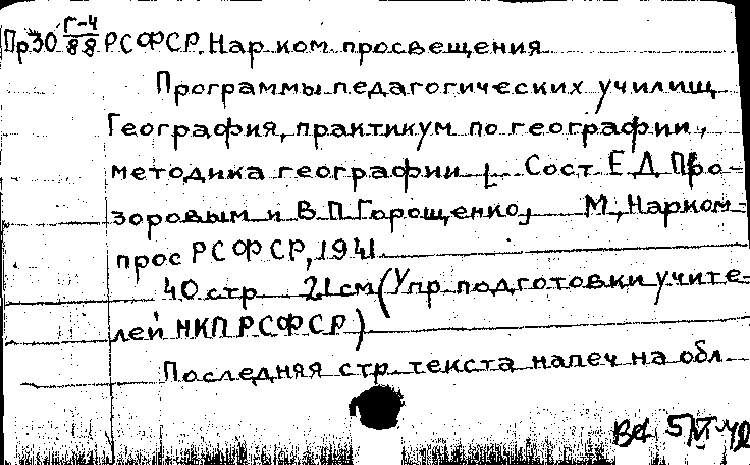 Пр30 Г-4/88 РСФСР. Нар. ком. просвещения
Программы педагогических училищ
География, практикум по географии,
методика географии [ Сост Е Д Про-
зоровым и В П Горощенко, М., Нарком-
прос РСФСР, 1941.
40 стр. 21 см (Упр подготовки учите-
лей НКП РСФСР)
Последняя стр. текста напеч на обл
5/VI